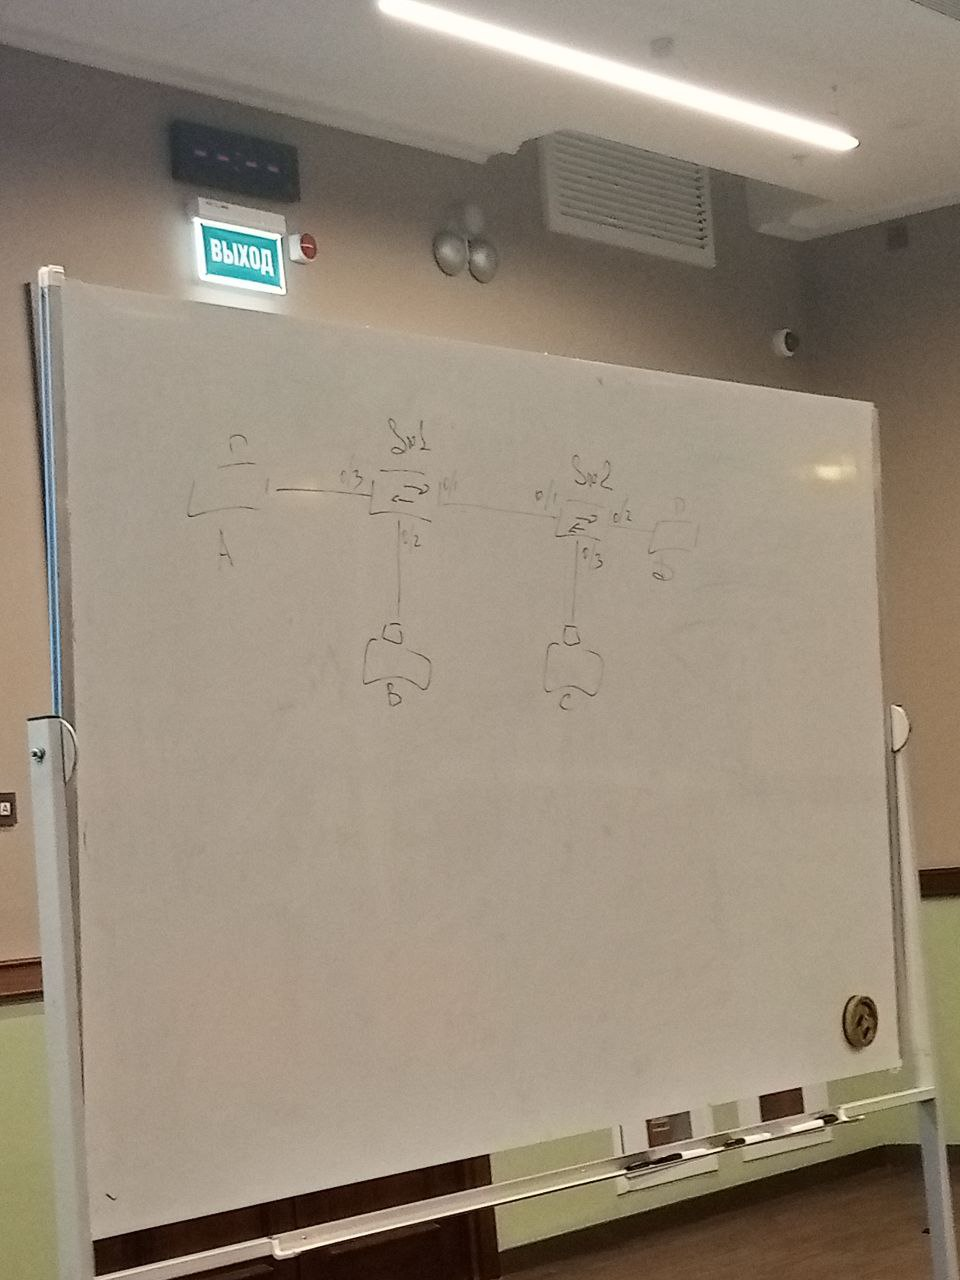 ВЫХОД
Sw1
Sw2
0/3
0/1
0/1
0/2
0/2
0/3
A
B
C
D
A